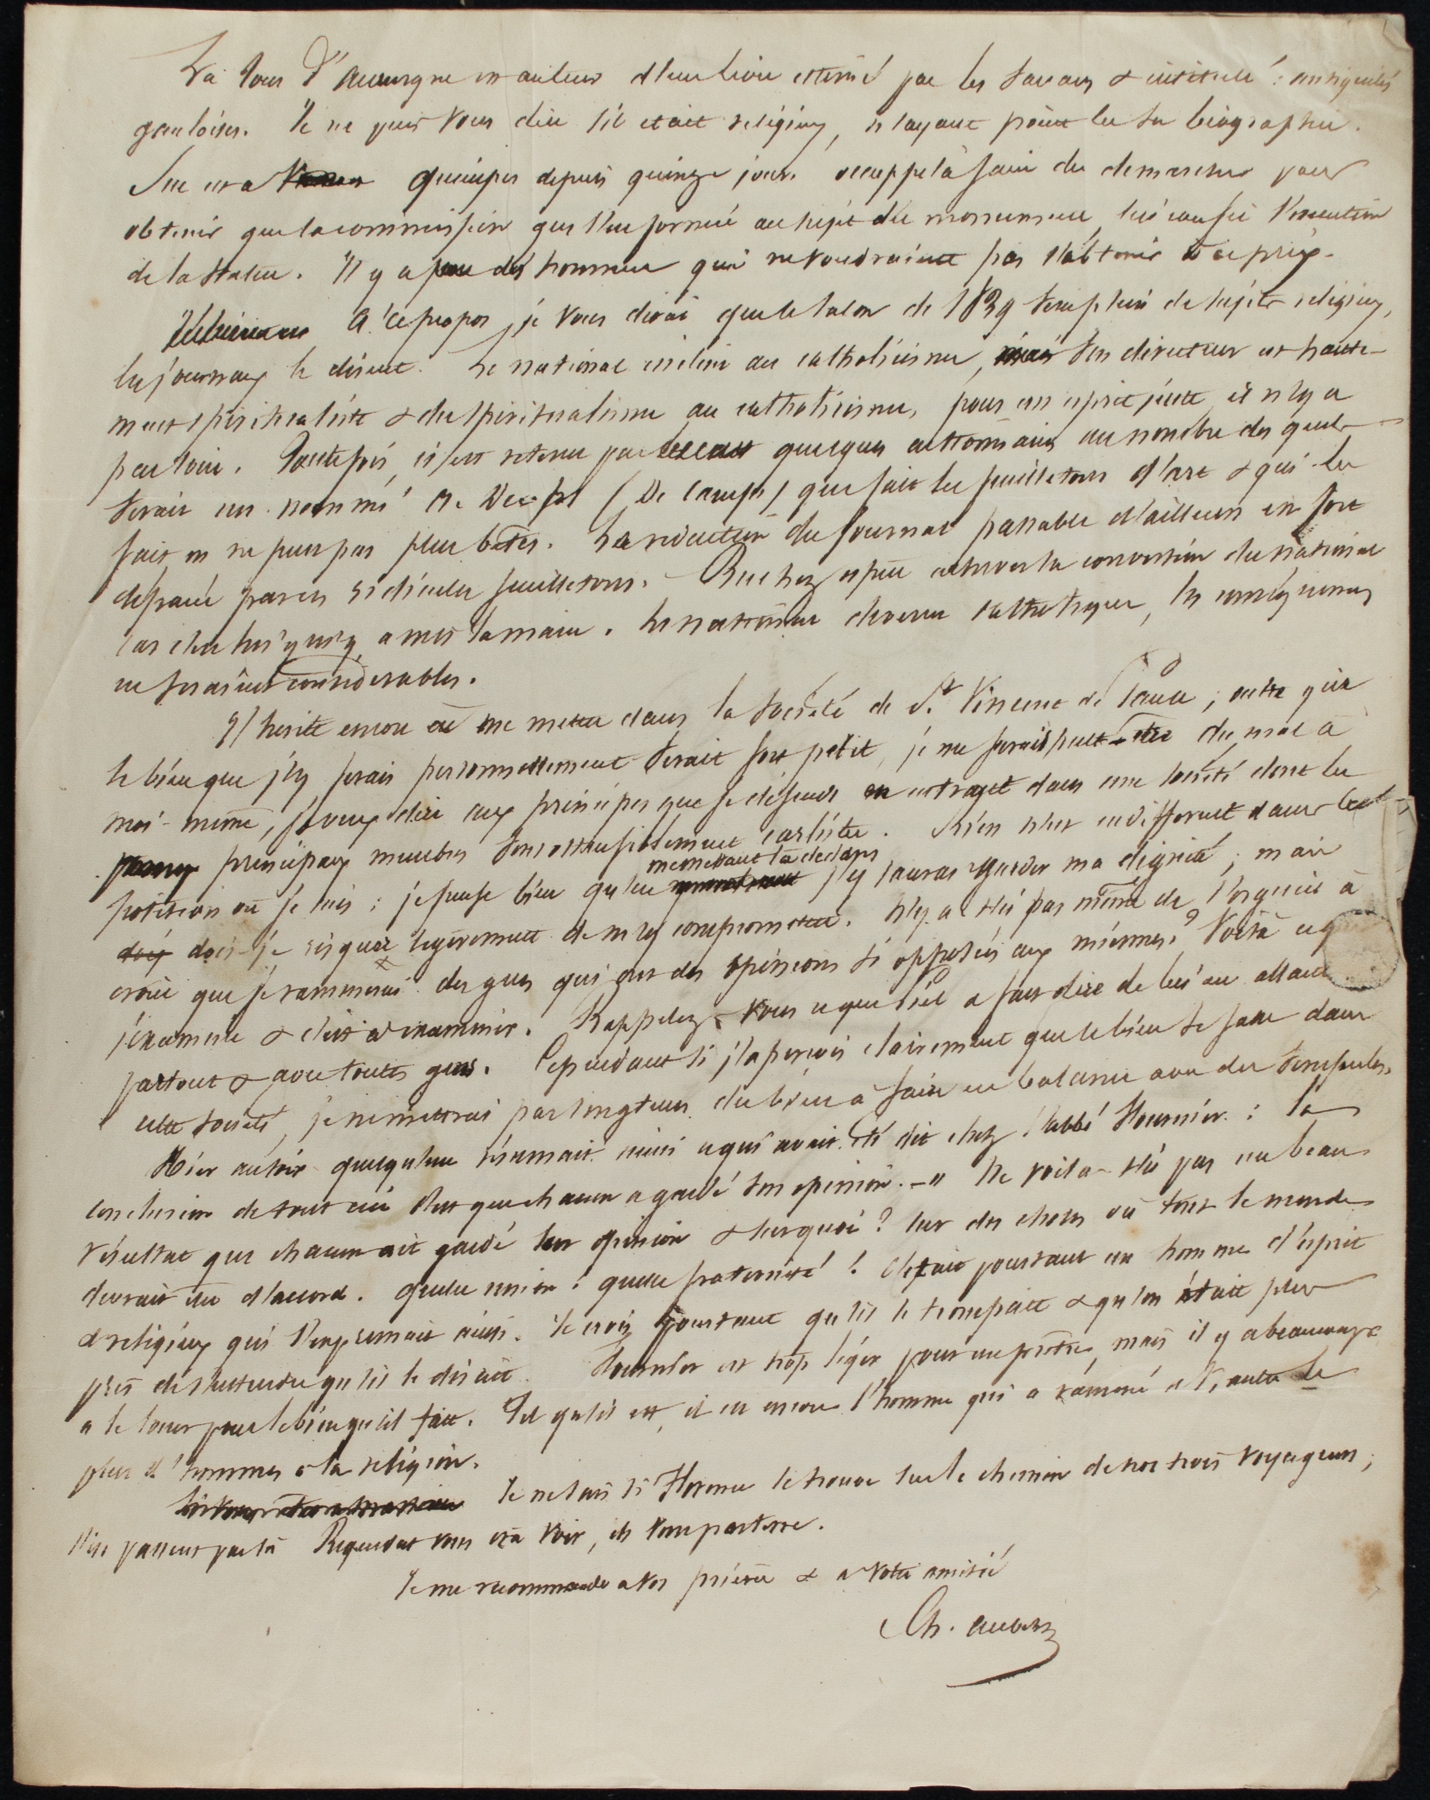 La Tour d'Auvergne est auteur d'un livre estimé par les savans & intitulé : antiquités
gauloises. Je ne puis vous dire s'il était religieux, n'ayant point lu sa biographie.
depuis quinze jours occuppé à faire des demarches pour
obtenir que la commission qui s'est formée au sujet du monument, lui confie l'execution
de la statue. Il y a peu des hommes qui ne voudraient pas l'obtenir à ce prix.
A ce propos je vous dirai que le salon de 1839 sera plein de sujets religieux,
les journaux le disent. Le national incline au catholicisme, son directeur est haute-
ment spiritualiste & du spiritualisme au catholicisme, pour un esprit juste, il n'y a
pas loin. Toutefois il est retenu par quelques actionnaires au nombre des quels
serait un nommé (De Camps) qui fait les feuilletons d'art & qui les
fait on ne peut pas plus bêtes. La rédaction du journal passable d'ailleurs est fort
déparée par ces ridicules feuilletons. Buchez espère achever la conversion du national
car c'est lui qui y a mis la main. Le national devenu catholique, les conséquences
en seraient considérables.
J'hésite encore à me mettre dans la société de St Vincent de Paul ; outre que
le bien que j'y ferais personnellement serait fort petit, je me ferais peut-être du mal à
moi-même, je veux dire aux principes que je défends en entrant dans une société dont les
principaux membres sont ostensiblement carlistes. Rien n'est indifferent dans la
position où je suis : je pense bien qu'en me mettant là dedans j'y saurai garder ma dignité ; mais
dois-je risquer légèrement de m'y compromettre. N'y a-t-il pas même de l'orgueil à
croire que je ramenerai des gens qui ont des opinions si opposées aux miennes ? Voilà ce que
j'examine & dois examiner. Rappelez-vous ce que a fait dire de lui en allant
partout & avec toutes gens. Cependant si j'aperçois clairement que le bien se fasse dans
cette société, je ne mettrai pas longtems du bien à faire en balance avec des scrupules.
Hier au soir quelqu'un résumait ainsi ce qui avait été dit chez l'abbé : la
conclusion de tout ceci c'est que chacun a gardé son opinion. — Ne voilà-t-il pas un beau
résultat que chacun ait gardé son opinion & sur quoi ? sur des choses où tout le monde
devrait être d'accord. quelle union ! quelle fraternité ! C'était pourtant un homme d'esprit
& religieux qui s'exprimait ainsi. Je crois pourtant qu'il se trompait & qu'on était plus
près de s'entendre qu'il le disait. est trop léger pour un prêtre, mais il y a beaucoup
à le louer pour le bien qu'il fait. Tel qu'il est, il est encore l'homme qui a ramené le
plus d'hommes à la religion.
Je ne sais si se trouve sur le chemin de nos trois voyageurs ;
s'ils passent par là vous ira voir, ils vous porteront.
Je me recommande à vos prières & à votre amitié
Ch.